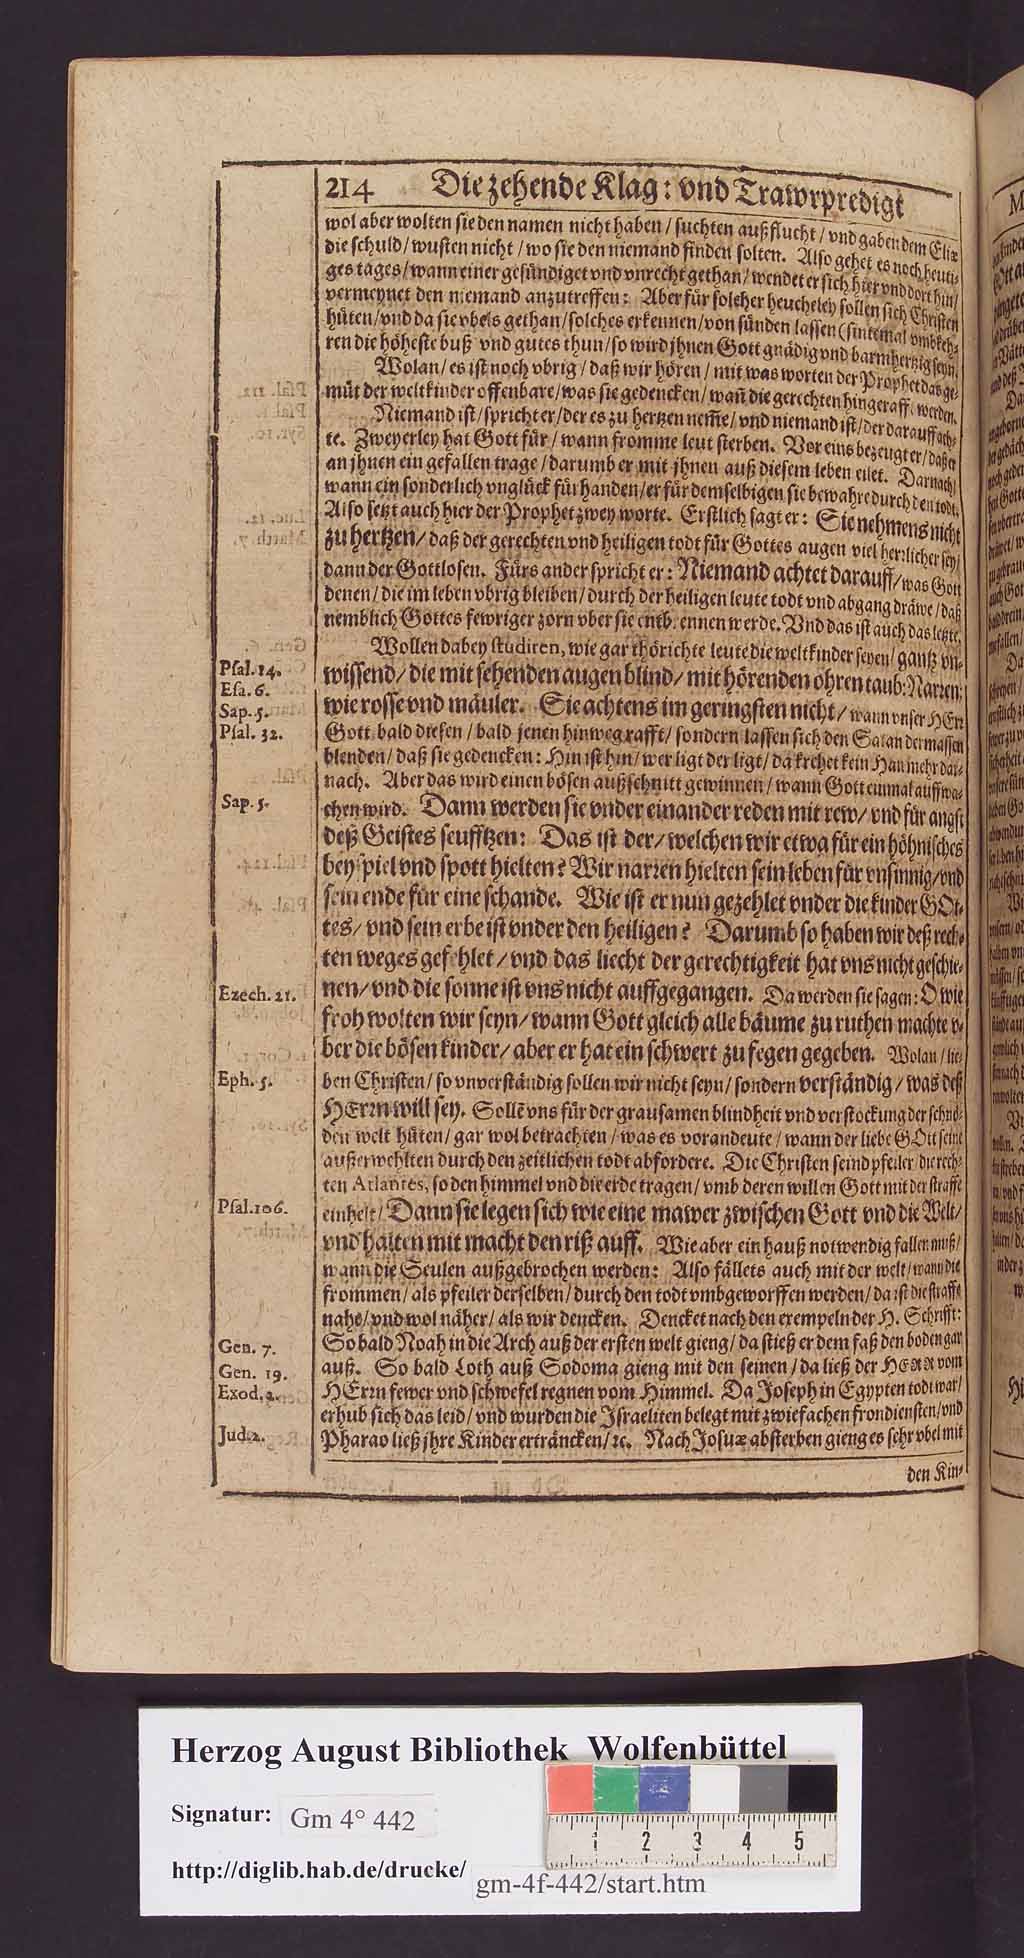 214 Die zehende Klag: vnd Trawrpredigt
wol aber wolten sie den namen nicht haben / suchten außflucht / vnd gaben dem Eliæ
die schuld / wusten nicht / wo sie den niemand finden solten. Also gehet es noch heuti-
ges tages / wann einer gesündiget vnd vnrecht gethan / wendet er sich hier vnd dort hin /
vermeynet den niemand anzutreffen: Aber für solcher heucheley sollen sich Christen
hüten / vnd da sie vbels gethan / solches erkennen / von sünden lassen (sintemal vmbkeh-
ren die höheste buß vnd gutes thun / so wird jhnen Gott gnädig vnd barmhertzig seyn.
Wolan / es ist noch vbrig / daß wir hören / mit was worten der Prophet das ge-
müt der weltkinder offenbare / was sie gedencken / wañ die gerechten hingerafft werden.
Niemand ist / spricht er / der es zu hertzen neme / vnd niemand ist / der darauff ach-
te. Zweyerley hat Gott für / wann fromme leut sterben. Vor eins bezeugt er / daß er
an jhnen ein gefallen trage / darumb er mit jhnen auß diesem leben eilet. Darnach /
wann ein sonderlich vnglück fürhanden / er für demselbigen sie bewahre durch den todt.
Also setzt auch hier der Prophet zwey worte. Erstlich sagt er: Sie nehmens nicht
zu hertzen / daß der gerechten vnd heiligen todt für Gottes augen viel herrlicher sey /
dann der Gottlosen. Fürs ander spricht er: Niemand achtet darauff / was Gott
denen / die im leben vbrig bleiben / durch der heiligen leute todt vnd abgang dräwe / daß
nemblich Gottes fewriger zorn vber sie entbrennen werde. Vnd das ist auch das letzte.
Wollen dabey studiren, wie gar thörichte leute die weltkinder seyen / gantz vn-
Psal. 14. wissend / die mit sehenden augen blind / mit hörenden ohren taub: Narren:
Esa. 6.
Sap. 5. wie rosse vnd mäuler. Sie achtens im geringsten nicht / wann vnser HErr
Psal. 32. Gott bald diesen / bald jenen hinweg rafft / sondern lassen sich den Satan dermassen
blenden / daß sie gedencken: Hin ist hin / wer ligt der ligt / da krehet kein Han mehr dar-
nach. Aber das wird einen bösen außschnitt gewinnen / wann Gott einmal auffwa-
Sap. 5. chen wird. Dann werden sie vnder einander reden mit rew / vnd für angst
deß Geistes seufftzen: Das ist der / welchen wir etwa für ein höhnisches
beyspiel vnd spott hielten? Wir narren hielten sein leben für vnsinnig / vnd
sein ende für eine schande. Wie ist er nun gezehlet vnder die kinder GOt-
tes / vnd sein erbe ist vnder den heiligen? Darumb so haben wir deß rech-
ten weges gefehlet / vnd das liecht der gerechtigkeit hat vns nicht geschie-
Ezech. 21. nen / vnd die sonne ist vns nicht auffgegangen. Da werden sie sagen: O wie
froh wolten wir seyn / wann Gott gleich alle bäume zu ruthen machte v-
ber die bösen kinder / aber er hat ein schwert zu fegen gegeben. Wolan / lie-
Eph. 5. ben Christen / so vnverständig sollen wir nicht seyn / sondern verständig / was deß
HErrn will sey. Sollẽ vns für der grausamen blindheit vnd verstockung der schnö-
den welt hüten / gar wol betrachten / was es vorandeute / wann der liebe GOtt seine
außerwehlten durch den zeitlichen todt abfordere. Die Christen seind pfeiler / die rech-
ten Atlantes, so den himmel vnd die erde tragen / vmb deren willen Gott mit der straffe
Psal. 106. einhelt / Dann sie legen sich wie eine mawer zwischen Gott vnd die Welt /
vnd halten mit macht den riß auff. Wie aber ein hauß notwendig fallen muß /
wann die Seulen außgebrochen werden: Also fällets auch mit der welt / wann die
frommen / als pfeiler derselben / durch den todt vmbgeworffen werden / da ist die straffe
nahe / vnd wol näher / als wir dencken. Dencket nach den exempeln der H. Schrifft:
Gen. 7. So bald Noah in die Arch auß der ersten welt gieng / da stieß er dem faß den boden gar
Gen. 19. auß. So bald Loth auß Sodoma gieng mit den seinen / da ließ der HERR vom
Exod. 2. HErrn fewer vnd schwefel regnen vom Himmel. Da Joseph in Egypten todt war /
erhub sich das leid / vnd wurden die Israeliten belegt mit zwiefachen frondiensten / vnd
Jud. 2. Pharao ließ jhre Kinder erträncken / ꝛc. Nach Josuæ absterben gieng es sehr vbel mit
den Kin-
Herzog August Bibliothek Wolfenbüttel
Signatur: Gm 4° 442
http://diglib.hab.de/drucke/ gm-4f-442/start.htm
1 2 3 4 5